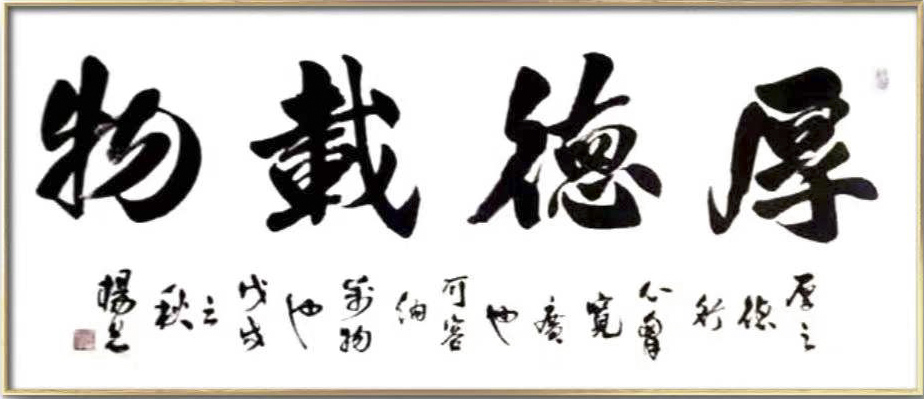 厚德載物
厚之德心胸寬廣也可容納萬物也戊戌之秋
楊